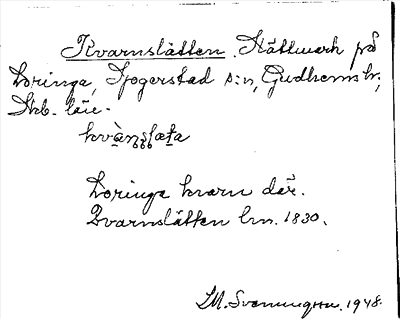 Kvarnslätten. Slättmark på
Loringa, Sjogerstad s:n, Gudhems hd,
Skb. län.
kvà̱n̥s̥l̥æt̥a
Loringa kvarn där.
Qvarnslätten lm. 1830.
LM. Svenungsson. 1948.